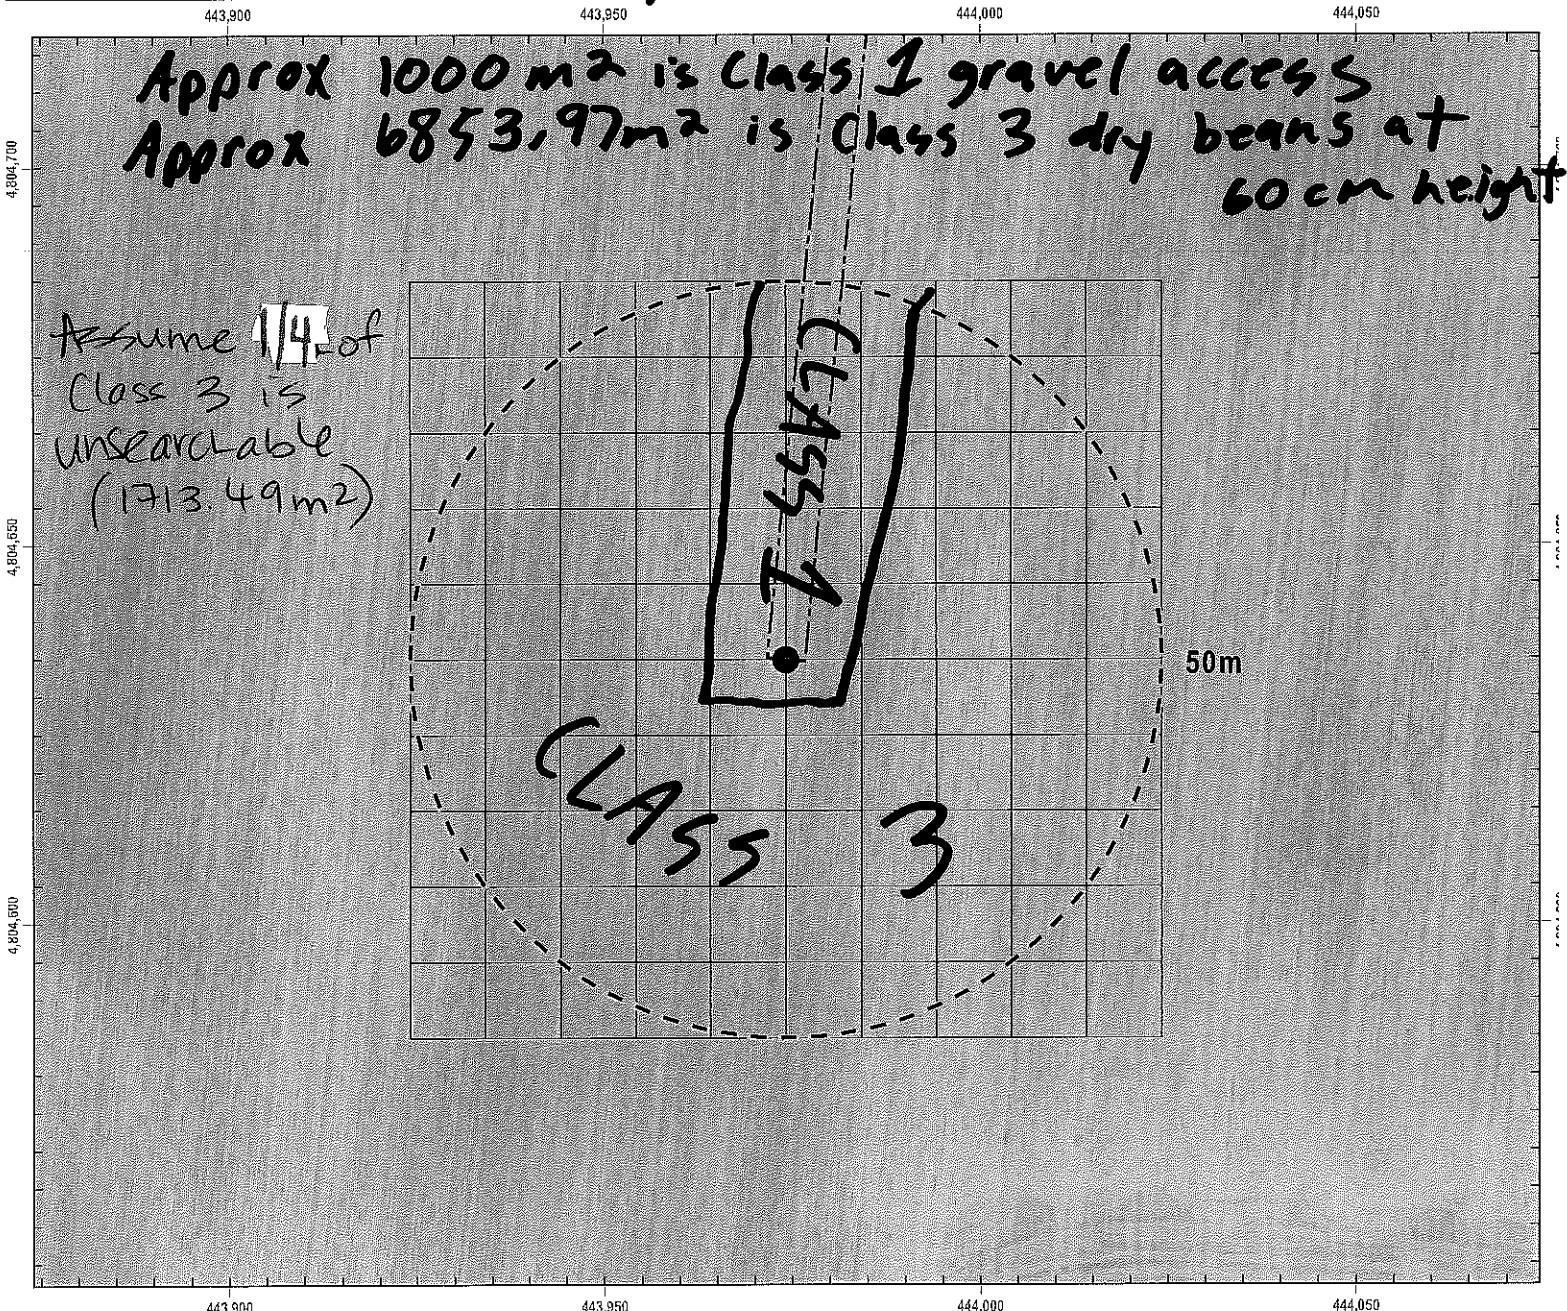 443,900 443,950 444,000 444,050
Approx 1000 m2 is Class 1 gravel access
Approx 6853,97m2 is Class 3 dry beans at
60 cm height
4,804,700
Assume 1/4 of
Class 3 is
unsearchable
(1713.49m2)
CLASS 1
4,804,550
50m
CLASS 3
4,804,600
443,900 443,950 444,000 444,050